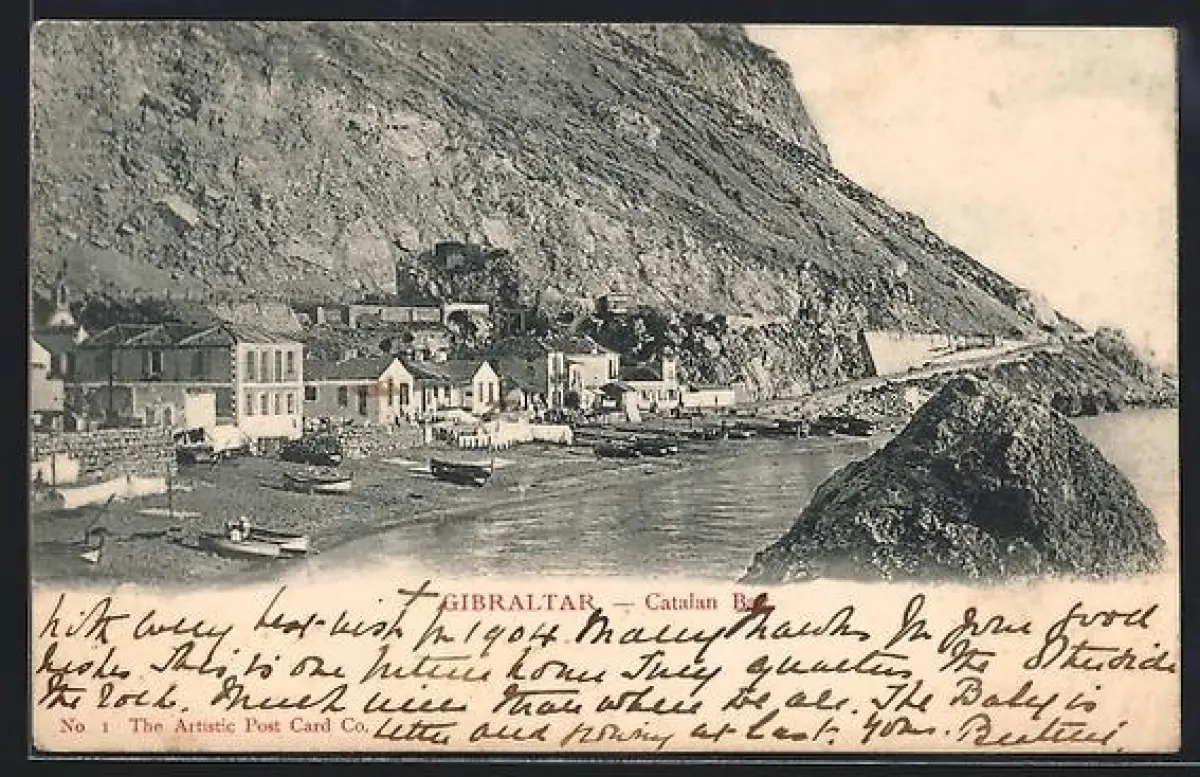 GIBRALTAR — Catalan Bay
With every best wish for 1904. Many thanks for your good
wishes This is one future home Jury quarters the otherside
the rock. Much nicer than where we are. The Baby is
No 1 The Artistic Post Card Co. better and growing at last. Yours.